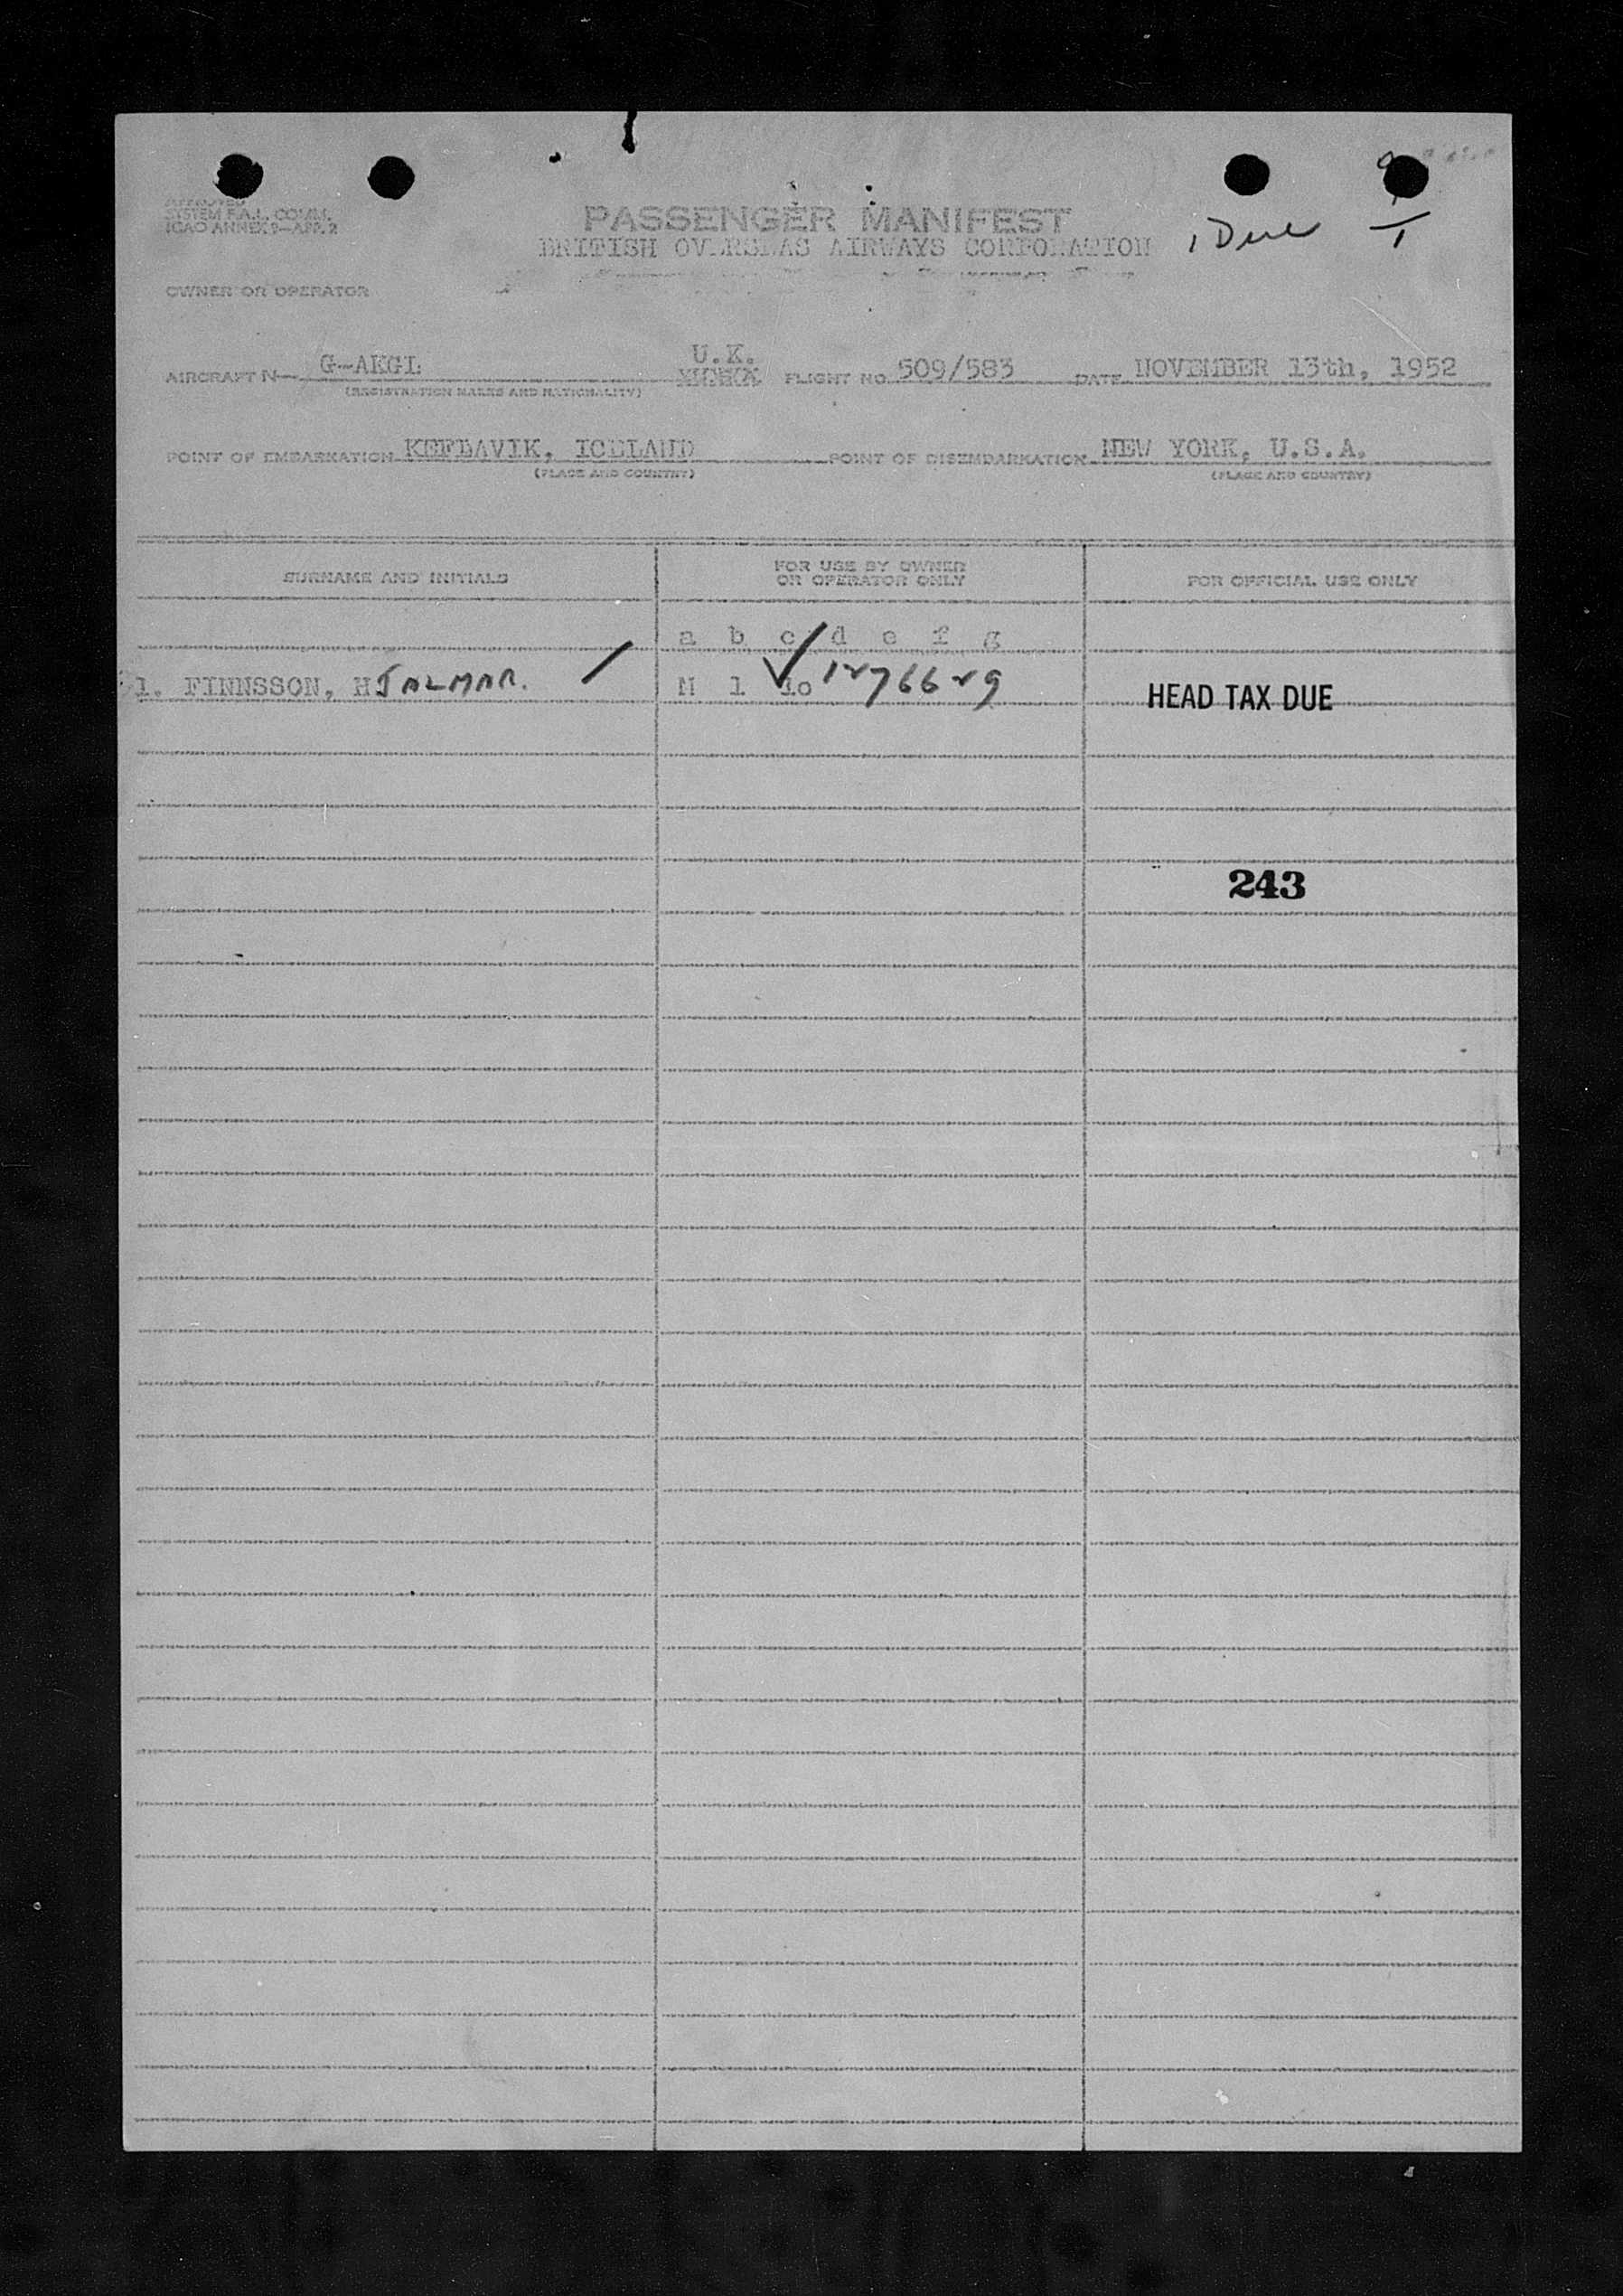 APPROVED
SYSTEM F.A.L. COMM.
ICAO ANNEX 9—APP. 2
PASSENGER MANIFEST
BRITISH OVERSEAS AIRWAYS CORPORATION
1 Due
OWNER OR OPERATOR
U.K.
AIRCRAFT N— G-AKGL FLIGHT NO. 509/583 DATE NOVEMBER 13th, 1952
(REGISTRATION MARKS AND NATIONALITY)
POINT OF EMBARKATION KEFLAVIK, ICELAND POINT OF DISEMBARKATION NEW YORK, U.S.A.
(PLACE AND COUNTRY) (PLACE AND COUNTRY)
SURNAME AND INITIALS FOR USE BY OWNER OR OPERATOR ONLY FOR OFFICIAL USE ONLY
a b c d e f g
1. FINNSSON, HJALMAR. M 1 10 1276629 HEAD TAX DUE
243